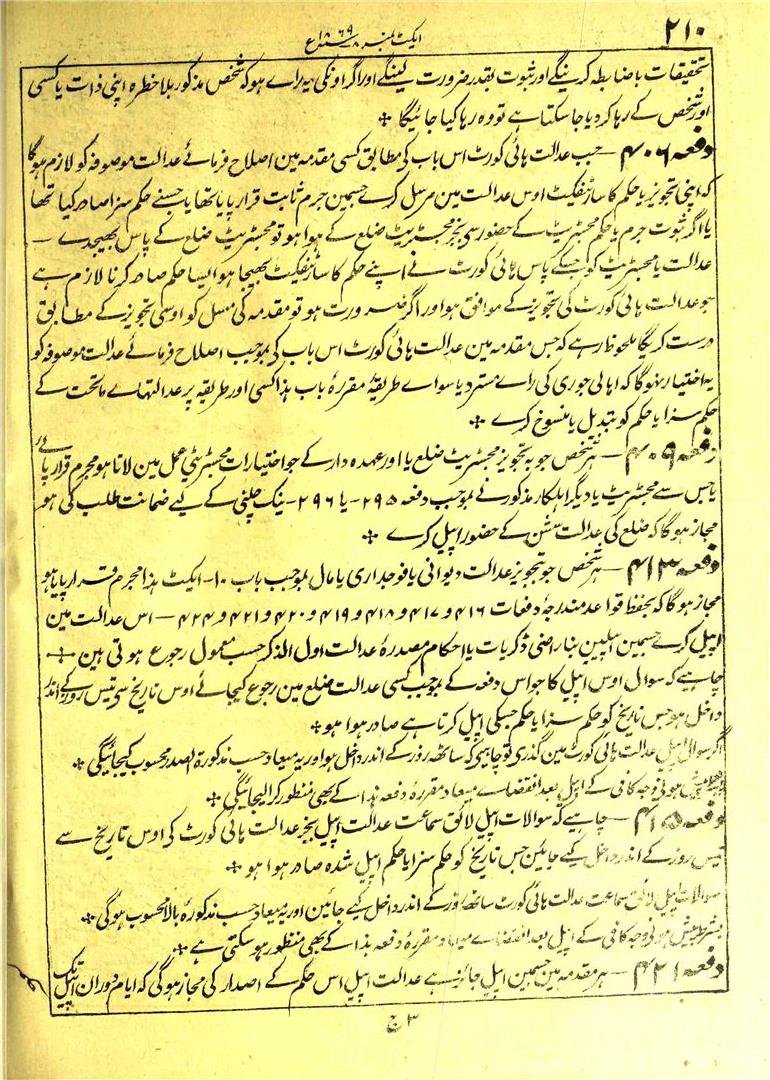 ۲۱۰
ایکٹ نمبر ۸ سنہ ۱۸۶۹ع
تحقیقات باضابطہ کرینگے اور ثبوت بقدر ضرورت لینگے اور اگر اونکی یہ راے ہو کہ شخص مذکور بلا خطرہ اپنی ذات یا کسی
اور شخص کے رہا کر دیا جا سکتا ہے تو وہ رہا کیا جائیگا +
دفعہ ۴۰۶ — جب عدالت ہائی کورٹ اس باب کی مطابق کسی مقدمہ مین اصلاح فرمائے عدالت موصوفہ کو لازم ہوگا
کہ اپنی تجویز یا حکم کا سارٹیفکیٹ اوس عدالت مین مرسل کرے جسمین جرم ثابت قرار پایا تھا یا جسنے حکم سزا صادر کیا تھا
یا اگر ثبوت جرم یا حکم مجسٹریٹ کے حضور سے بجز مجسٹریٹ ضلع کے ہوا ہو تو مجسٹریٹ ضلع کے پاس بھیجدے —
عدالت یا مجسٹریٹ کو جسکے پاس ہائی کورٹ نے اپنے حکم کا سارٹیفکیٹ بھیجا ہو ایسا حکم صادر کرنا لازم ہے
جو عدالت ہائی کورٹ کی تجویز کے موافق ہو اور اگر ضرورت ہو تو مقدمہ کی مسل کو اوسی تجویز کے مطابق
درست کریگا ملحوظ رہے کہ جس مقدمہ مین عدالت ہائی کورٹ اس باب کی بموجب اصلاح فرمائے عدالت موصوفہ کو
یہ اختیار نہوگا کہ اہالی جوری کی راے مسترد یا سواے طریقۂ مقررۂ باب ہذا کسی اور طریقہ پر عدالتہاے ماتحت کے
حکم سزا یا حکم کو تبدیل یا منسوخ کرے +
دفعہ ۴۰۹ — ہر شخص جو بہ تجویز مجسٹریٹ ضلع یا اور عہدہ دار کے جو اختیارات مجسٹریٹی عمل مین لاتا ہو مجرم قرار پائے
یا جس سے مجسٹریٹ یا دیگر اہلکار مذکور نے بموجب دفعہ ۲۹۵ - یا ۲۹۶ - نیک چلنی کے لیے ضمانت طلب کی ہو
مجاز ہوگا کہ ضلع کی عدالت سشن کے حضور اپیل کرے +
دفعہ ۴۱۳ — ہر شخص جو بتجویز عدالت دیوانی یا فوجداری یا مال بموجب باب ۱۰ - ایکٹ ہذا مجرم قرار پایا ہو
مجاز ہوگا کہ بحفظ قواعد مندرجۂ دفعات ۴۱۶ و ۴۱۷ و ۴۱۸ و ۴۱۹ و ۴۲۰ و ۴۲۱ و ۴۲۴ — اس عدالت مین
اپیل کرے جسمین اپیلین بناراضی ڈگریات یا احکام مصدرۂ عدالت اول الذکر حسب معمول رجوع ہوتی ہین +
چاہیے کہ سوال اوس اپیل کا جو اس دفعہ کے بموجب کسی عدالت ضلع مین رجوع کیجائے اوس تاریخ سے تیس روز کے اندر
داخل ہو جس تاریخ کو حکم سزا یا حکم جسکی اپیل کرتا ہے صادر ہوا ہو +
اگر سوال اپیل عدالت ہائی کورٹ مین گذری تو چاہیے کہ ساٹھ روز کے اندر داخل ہو اور یہ میعاد حسب مذکورۃ الصدر محسوب کیجائیگی +
ہونی وجہ کافی کے اپیل بعد انقضاے میعاد مقررۂ دفعہ ہذا کے بھی منظور کر لیجائیگی +
دفعہ ۴۱۵ — چاہیے کہ سوالات اپیل لائق سماعت عدالت اپیل بجز عدالت ہائی کورٹ کی اوس تاریخ سے
تیس روز کے اندر داخل کیے جائین جس تاریخ کو حکم سزا یا حکم اپیل شدہ صادر ہوا ہو +
سوالات اپیل لائق سماعت عدالت ہائی کورٹ ساٹھ روز کے اندر داخل کیے جائین اور یہ میعاد حسب مذکورۂ بالا محسوب ہوگی +
بشرط پیش ہونی وجہ کافی کے اپیل بعد انقضاے میعاد مقررۂ دفعہ ہذا کے بھی منظور ہو سکتی ہے +
دفعہ ۴۲۱ — ہر مقدمہ مین جسمین اپیل جائز ہے عدالت اپیل اس حکم کے اصدار کی مجاز ہوگی کہ ایام دوران اپیل تک
۳ ج